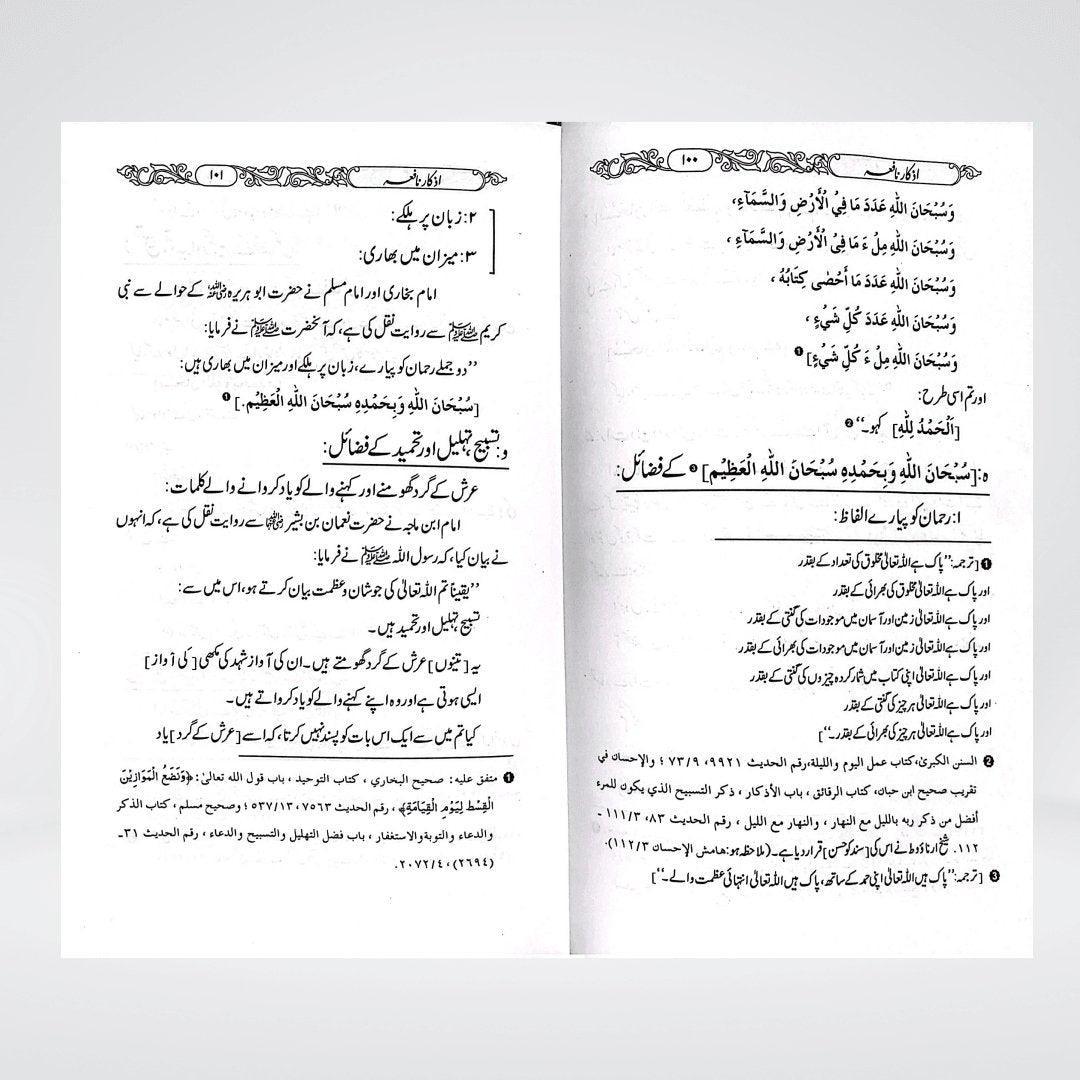 ۱۰۰
اذکار نافعہ
وَسُبْحَانَ اللّٰهِ عَدَدَ مَا فِي الْأَرْضِ وَالسَّمَآءِ،
وَسُبْحَانَ اللّٰهِ مِلْءَ مَا فِيْ الْأَرْضِ وَالسَّمَآءِ ،
وَسُبْحَانَ اللّٰهِ عَدَدَ مَا أَحْصٰى كِتَابُهُ ،
وَسُبْحَانَ اللّٰهِ عَدَدَ كُلِّ شَيْءٍ ،
وَسُبْحَانَ اللّٰهِ مِلْءَ كُلِّ شَيْءٍ] ❶
اور تم اسی طرح:
[اَلْحَمْدُ لِلّٰهِ] کہو۔‘‘ ❷
ہ: [سُبْحَانَ اللّٰهِ وَبِحَمْدِهِ سُبْحَانَ اللّٰهِ الْعَظِيْمِ] ❸ کے فضائل:
۱: رحمان کو پیارے الفاظ:
❶ [ترجمہ: ’’پاک ہے اللہ تعالیٰ مخلوق کی تعداد کے بقدر
اور پاک ہے اللہ تعالیٰ مخلوق کی بھرائی کے بقدر
اور پاک ہے اللہ تعالیٰ زمین اور آسمان میں موجودات کی گنتی کے بقدر
اور پاک ہے اللہ تعالیٰ زمین اور آسمان میں موجودات کی بھرائی کے بقدر
اور پاک ہے اللہ تعالیٰ اپنی کتاب میں شمار کردہ چیزوں کی گنتی کے بقدر
اور پاک ہے اللہ تعالیٰ ہر چیز کی گنتی کے بقدر
اور پاک ہے اللہ تعالیٰ ہر چیز کی بھرائی کے بقدر۔‘‘]
❷ السنن الكبرىٰ، كتاب عمل اليوم والليلة، رقم الحديث ۹۹۲۱، ۷۳/۹ ؛ والإحسان في
تقريب صحيح ابن حبان، كتاب الرقائق ، باب الأذكار ، ذكر التسبيح الذي يكون للمرء
أفضل من ذكر ربه بالليل مع النهار ، والنهار مع الليل ، رقم الحديث ۸۳، ۱۱۱/۳ ـ
۱۱۲. شیخ ارناؤوط نے اس کی [سند کو حسن] قرار دیا ہے۔ (ملاحظہ ہو: هامش الإحسان ۱۱۲/۳).
❸ [ترجمہ: ’’پاک ہیں اللہ تعالیٰ اپنی حمد کے ساتھ، پاک ہیں اللہ تعالیٰ انتہائی عظمت والے۔‘‘]
۱۰۱
اذکار نافعہ
۲: زبان پر ہلکے:
۳: میزان میں بھاری:
امام بخاری اور امام مسلم نے حضرت ابو ہریرہ رضی اللہ عنہ کے حوالے سے نبی
کریم ﷺ سے روایت نقل کی ہے، کہ آنحضرت ﷺ نے فرمایا:
’’دو جملے رحمان کو پیارے، زبان پر ہلکے اور میزان میں بھاری ہیں:
[سُبْحَانَ اللّٰهِ وَبِحَمْدِهِ سُبْحَانَ اللّٰهِ الْعَظِيْمِ.] ❶
و: تسبیح، تہلیل اور تحمید کے فضائل:
عرش کے گرد گھومنے اور کہنے والے کو یاد کروانے والے کلمات:
امام ابن ماجہ نے حضرت نعمان بن بشیر رضی اللہ عنہما سے روایت نقل کی ہے، کہ انہوں
نے بیان کیا، کہ رسول اللہ ﷺ نے فرمایا:
’’یقیناً تم اللہ تعالیٰ کی جو شان و عظمت بیان کرتے ہو، اس میں سے:
تسبیح، تہلیل اور تحمید ہیں۔
یہ [تینوں] عرش کے گرد گھومتے ہیں۔ ان کی آواز شہد کی مکھی [کی آواز]
ایسی ہوتی ہے اور وہ اپنے کہنے والے کو یاد کرواتے ہیں۔
کیا تم میں سے ایک اس بات کو پسند نہیں کرتا، کہ اسے [عرش کے گرد] یاد
❶ متفق عليه: صحيح البخاري ، كتاب التوحيد ، باب قول الله تعالىٰ: ﴿وَنَضَعُ الْمَوَازِيْنَ
الْقِسْطَ لِيَوْمِ الْقِيَامَةِ﴾ ، رقم الحديث ۷۵۶۳، ۵۳۷/۱۳ ؛ وصحيح مسلم ، كتاب الذكر
والدعاء والتوبة والاستغفار ، باب فضل التهليل والتسبيح والدعاء ، رقم الحديث ۳۱ـ
(۲۶۹۴)، ۲۰۷۲/۴.